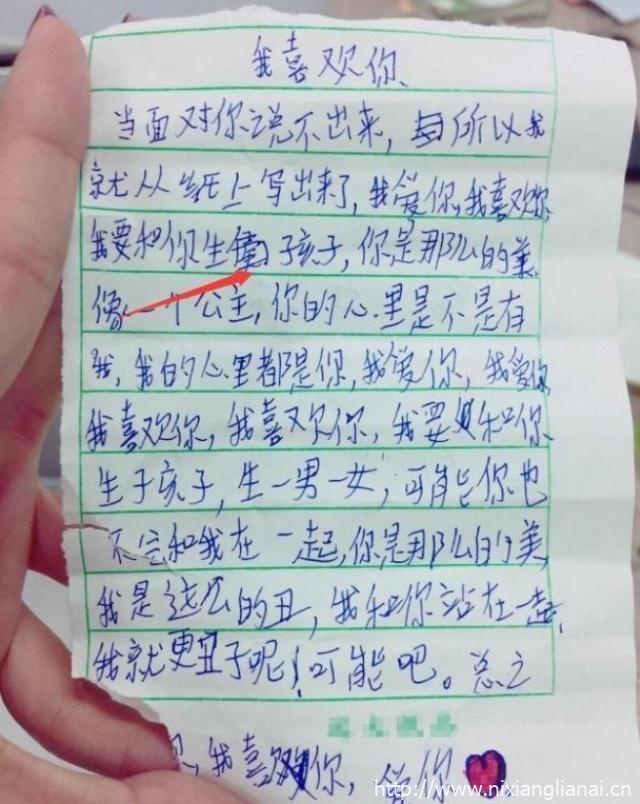 我喜欢你、
当面对你说不出来，所以我
就从纸上写出来了，我爱你，我喜欢你
我要和你生子孩子，你是那么的美
像一个公主，你的心里是不是有
我，我的心里都是你，我爱你，我爱你
我喜欢你，我喜欢你，我要和你
生子孩子，生一男一女，可能你也
不会和我在一起，你是那么的美，
我是这么的丑，我和你站在一起，
我就更丑了呢！可能吧。总之
，我喜欢你，爱你
http://www.nixianglianai.cn